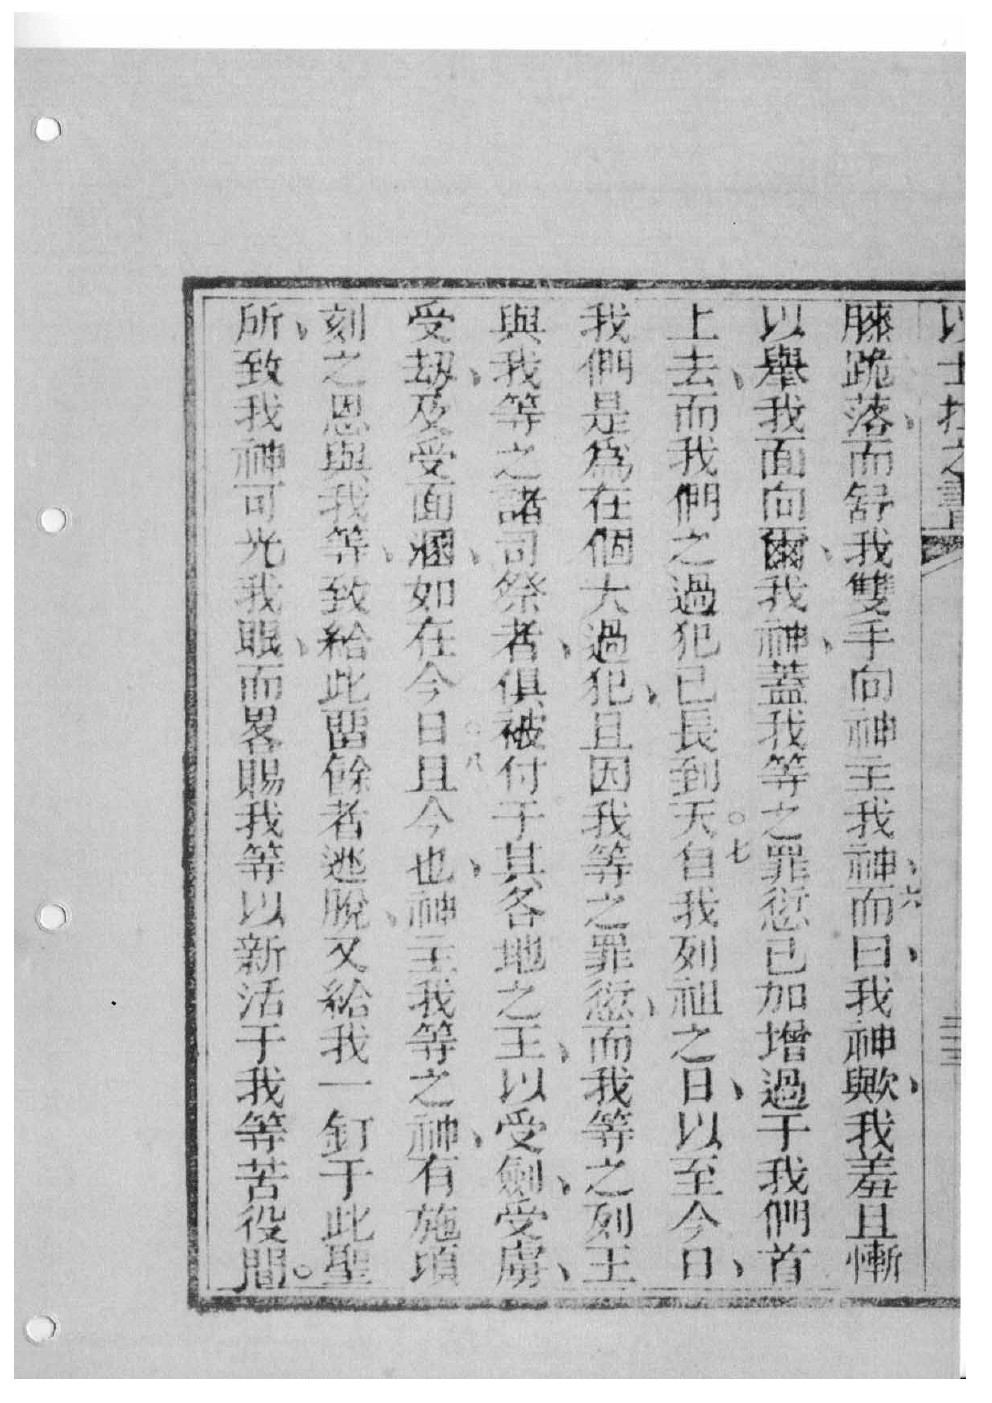 以士拉之書 三三
膝跪落、而舒我雙手向神主我神、○六而曰、我神歟、我羞且慚
以舉我面向爾、我神、蓋我等之罪愆已加增過于我們首
上去、而我們之過犯已長到天○七自我列祖之日、以至今日、
我們是為在個大過犯、且因我等之罪愆、而我等之列王
與我等之諸司祭者、俱被付于其各地之王、以受劍、受虜、
受刼、及受面𢡱、如在今日○八且今也、神主我等之神、有施頃
刻之恩與我等、致給此畱餘者逃脫、又給我一釘于此聖
所、致我神可光我眼、而畧賜我等以新活于我等苦役間。